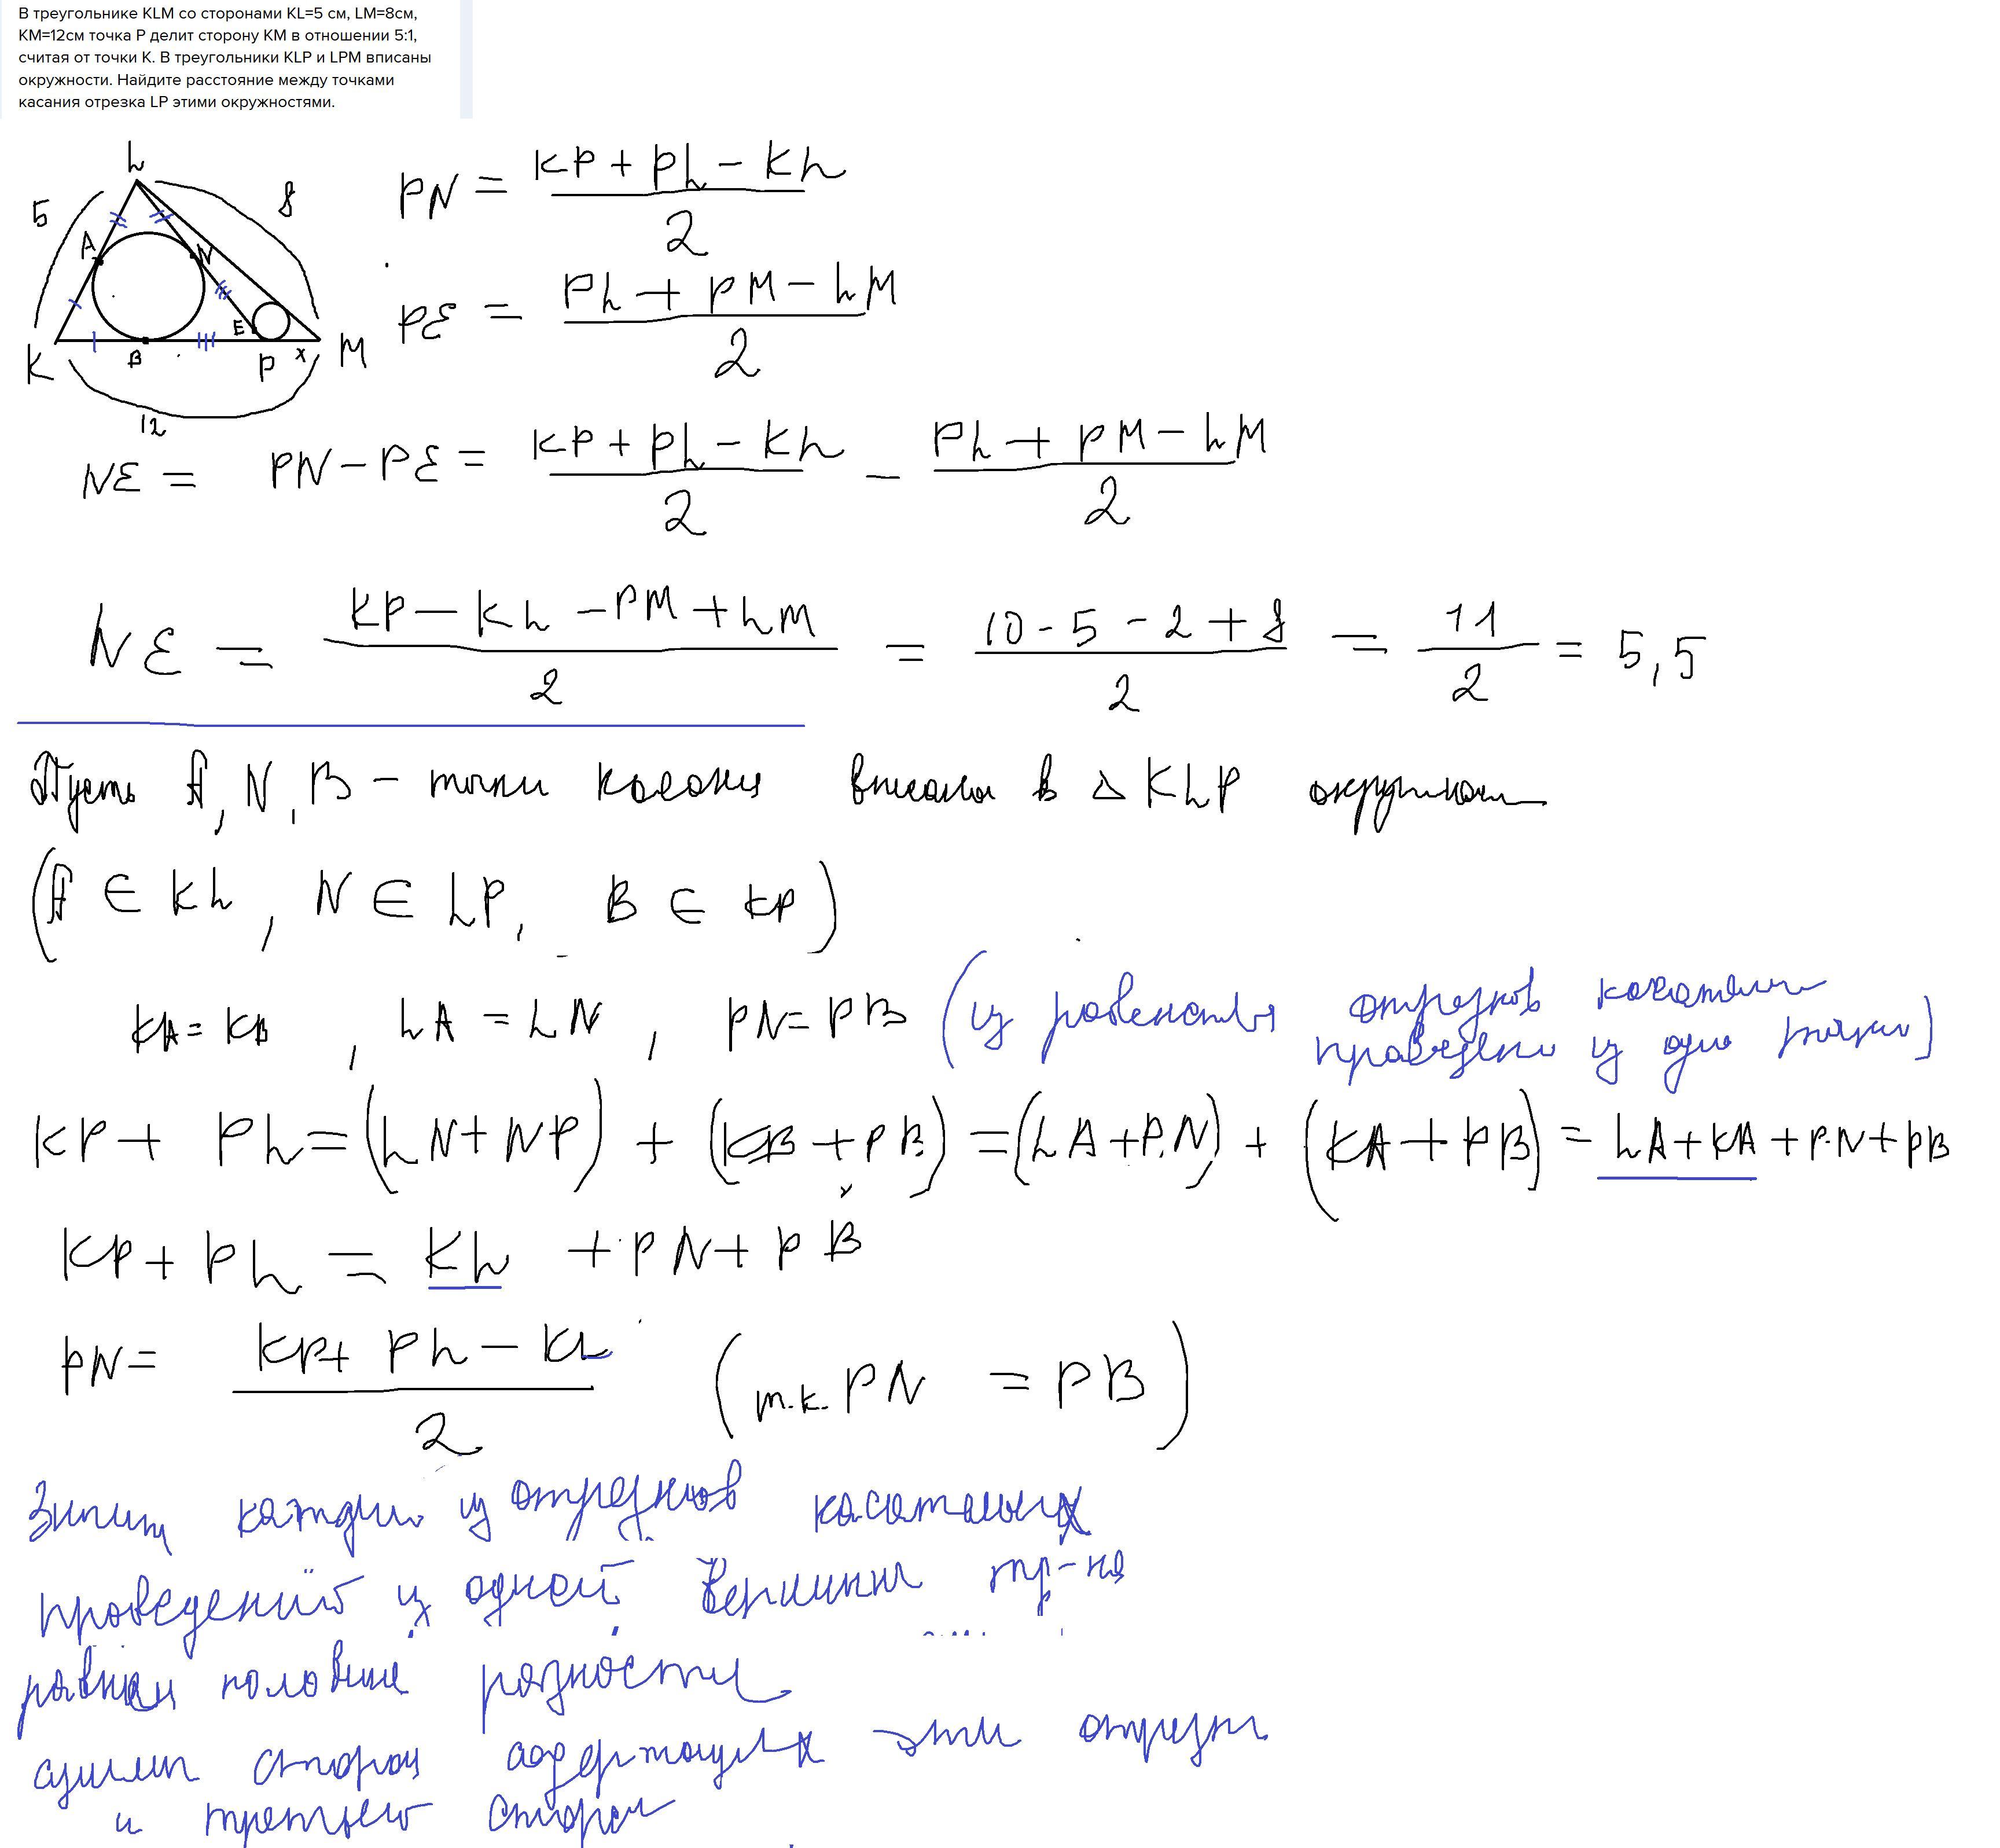 В треугольнике KLM со сторонами KL=5 см, LM=8см,
КМ=12см точка Р делит сторону КМ в отношении 5:1,
считая от точки К. В треугольники KLP и LPM вписаны
окружности. Найдите расстояние между точками
касания отрезка LP этими окружностями.
L
5
8
A
N
E
K
B
P
x
M
12
PN = (KP + PL - KL) / 2
PE = (PL + PM - LM) / 2
NE = PN - PE = (KP + PL - KL) / 2 - (PL + PM - LM) / 2
NE = (KP - KL - PM + LM) / 2 = (10 - 5 - 2 + 8) / 2 = 11 / 2 = 5,5
Пусть A, N, B - точки касания в △ KLP
(A ∈ KL, N ∈ LP, B ∈ KP)
KA = KB, LA = LN, PN = PB (из равенства отрезков
из
KP + PL = (LN + NP) + (KB + PB) = (LA + PN) + (KA + PB) = LA + KA + PN + PB
KP + PL = KL + PN + PB
PN = (KP + PL - KL) / 2 (т.к. PN = PB)
из отрезков касательных
из одной вершины тр-ка
половине разности
сторон эти
и третьей